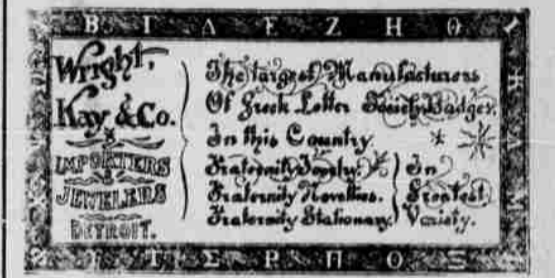 Β Γ Δ Ε Ζ Η Θ Ι
Wright,
Kay & Co.
IMPORTERS
&
JEWELERS
DETROIT.
The Largest Manufacturers
Of Greek Letter Society Badges.
In this Country.
Fraternity Jewelry.
Fraternity Novelties.
Fraternity Stationary.
In
Greatest
Variety.
Κ Λ Μ
Τ Σ Ρ Π Ο Ξ